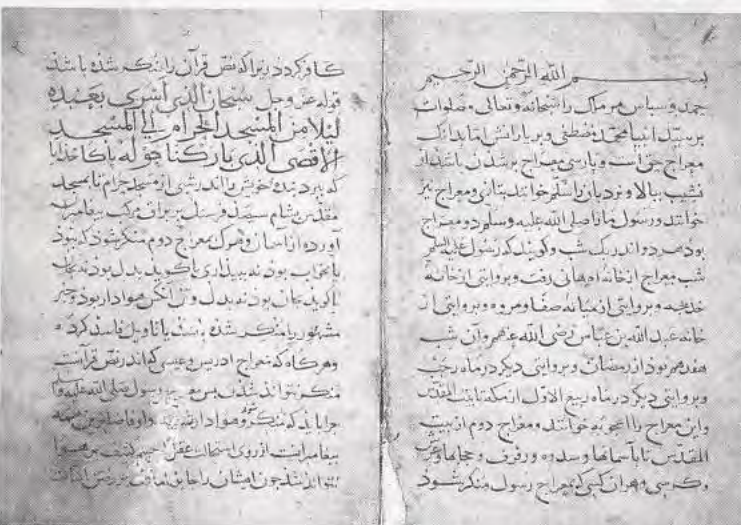 بسم الله الرحمن الرحیم
حمد و سپاس مر ملک را سبحانه و تعالی و صلوات
بر سید انبیا محمد مصطفی و بر یارانش اما بدانک
معراج حق است و بپارسی معراج بر شدن باشد از
نشیب ببالا و نردبان را سلم خوانند بتازی و معراج نیز
خوانند و رسول ما را صلی الله علیه و سلم دو معراج
بود هر دو اندر یک شب و گویند که رسول علیه السلم
شب معراج از خانه ام هانی رفت و بروایتی از خانه
خدیجه و بروایتی از میانه صفا و مروه و بروایتی از
خانه عبد الله بن عباس رضی الله عنهم و آن شب
هفدهم بود از رمضان و بروایتی دیگر در ماه رجب
و بروایتی دیگر در ماه ربیع الاول از مکه تا بیت المقدس
و این معراج را اعجوبه خوانند و معراج دوم از بیت
المقدس تا بآسمانها و سدره و رفرف و حجابها و عرش
و کرسی و هران کسی که بمعراج رسول منکر شود
کافر گردد زیرا که نص قرآن را منکر شده باشد
قوله عز و جل سبحان الذی أسری بعبده
لیلا من المسجد الحرام إلی المسجد
الأقصی الذی بارکنا حوله پاکا خدایا
که ببرد بنده خویش را اندر شبی از مسجد حرام تا بمسجد
مقدس بشام
آورده از آسان و هرک بمعراج دوم منکر شود که بود
یا بخواب بود نه ببیداری یا گوید بدل بود نه بجان
یا گوید بجان بود نه بدل و تن آنکس هوادار بود و خبر
مشهور را منکر شده باشد یا تاویل فاسد کرده
و هرگاه که معراج ادریس و عیسی که اندر نص قرآنست
منکر نتواند شدن پس معراج رسول صلی الله علیه و سلم
چرا باید که منکر و هوادار و او فاضلترین همه
پیغامبرانست از روی عقل بر هوا
نتواند شد چون ایشان را